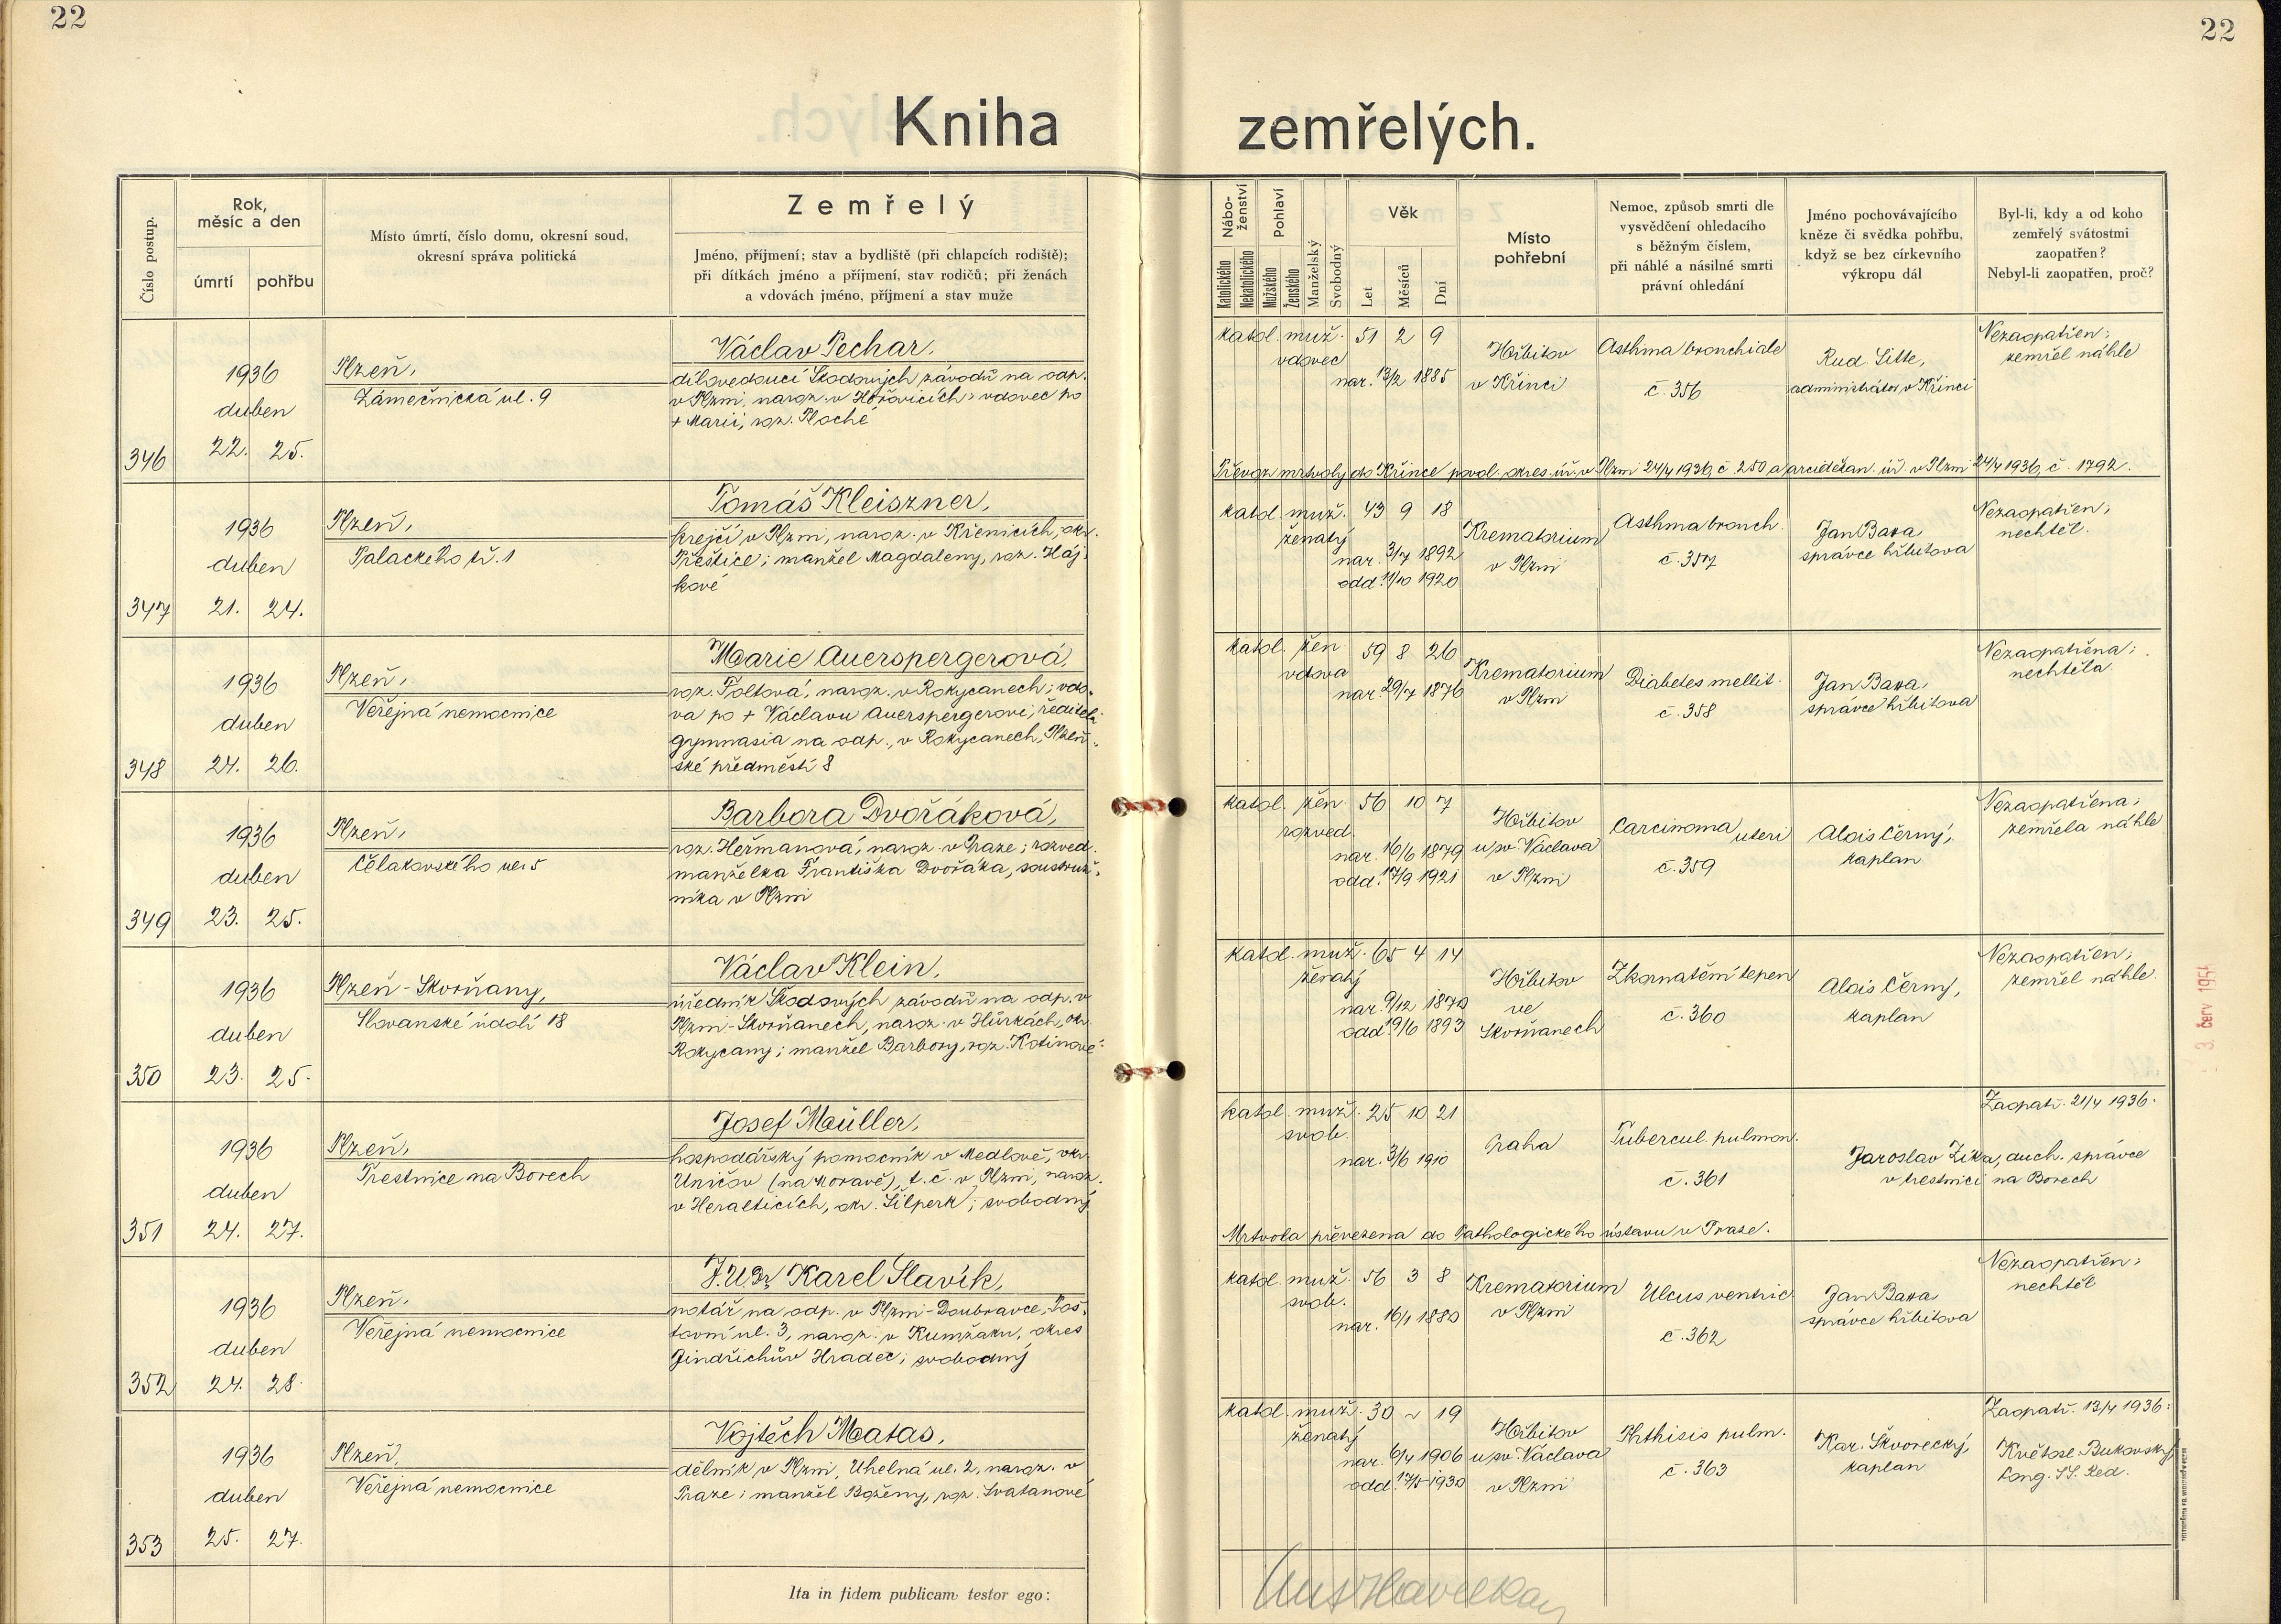 22
22
Kniha zemřelých.
Číslo postup.
Rok, měsíc a den
úmrtí
pohřbu
Místo úmrtí, číslo domu, okresní soud,
okresní správa politická
Zemřelý
Jméno, příjmení; stav a bydliště (při chlapcích rodiště);
při dítkách jméno a příjmení, stav rodičů; při ženách
a vdovách jméno, příjmení a stav muže
Nábo-
ženství
Katolického
Nekatolického
Pohlaví
Mužského
Ženského
Manželský
Svobodný
Věk
Let
Měsíců
Dní
Místo
pohřební
Nemoc, způsob smrti dle
vysvědčení ohledacího
s běžným číslem,
při náhlé a násilné smrti
právní ohledání
Jméno pochovávajícího
kněze či svědka pohřbu,
když se bez církevního
výkropu dál
Byl-li, kdy a od koho
zemřelý svátostmi
zaopatřen?
Nebyl-li zaopatřen, proč?
346
1936
duben
22. 25.
Plzeň,
Zámečnická ul. 9
Václav Pechar,
dílovedoucí Škodových závodů na odp.
v Plzni, naroz. v Hořovicích; vdovec po
+ Marii, roz. Ploché
katol. muž. 51 2 9
vdovec
nar. 13/2 1885
Hřbitov
v Křinci
Asthma bronchiale
č. 356
Rud. Litte,
administrátor v Křinci
Nezaopatřen;
zemřel náhle
Převoz mrtvoly do Křince povol. okres. úř. v Plzni 24/4 1936, č. 250 a arciděkan. úř. v Plzni 24/4 1936, č. 1792.
347
1936
duben
21. 24.
Plzeň,
Palackého tř. 1
Tomáš Kleiszner,
krejčí v Plzni, naroz. v Křenicích, okr.
Přeštice; manžel Magdaleny, roz. Háj-
kové
katol. muž. 43 9 18
ženatý
nar. 3/7 1892
odd. 11/10 1920
Krematorium
v Plzni
Asthma bronch.
č. 357
Jan Baxa
správce hřbitova
Nezaopatřen;
nechtěl.
348
1936
duben
24. 26.
Plzeň,
Veřejná nemocnice
Marie Auerspergerová,
roz. Foltová, naroz. v Rokycanech; vdo-
va po + Václavu Auerspergerovi, řediteli
gymnasia na odp., v Rokycanech, Plzeň-
ské předměstí 8
katol. žen. 59 8 26
vdova
nar. 29/7 1876
Krematorium
v Plzni
Diabetes mellit.
č. 358
Jan Baxa,
správce hřbitova
Nezaopatřena;
nechtěla.
349
1936
duben
23. 25.
Plzeň,
Čelakovského ul. 5
Barbora Dvořáková,
roz. Heřmanová, naroz. v Praze; rozved.
manželka Františka Dvořáka, soustruž-
níka v Plzni
katol. žen. 56 10 7
rozved.
nar. 16/6 1879
odd. 17/9 1921
Hřbitov
u sv. Václava
v Plzni
Carcinoma uteri
č. 359
Alois Černý,
kaplan
Nezaopatřena;
zemřela náhle
350
1936
duben
23. 25.
Plzeň-Skvrňany,
Slovanské údolí 18
Václav Klein,
úředník Škodových závodů na odp. v
Plzni-Skvrňanech, naroz. v Hůrkách, okr.
Rokycany; manžel Barbory, roz. Kotinové
katol. muž. 65 4 14
ženatý
nar. 9/12 1870
odd. 19/6 1893
Hřbitov
ve
Skvrňanech
Zkornatění tepen
č. 360
Alois Černý,
kaplan
Nezaopatřen;
zemřel náhle.
351
1936
duben
24. 27.
Plzeň,
Trestnice na Borech
Josef Maüller,
hospodářský pomocník v Medlově, okr.
Uničov (na Moravě), t. č. v Plzni, naroz.
v Heralticích, okr. Šilperk; svobodný
katol. muž. 25 10 21
svob.
nar. 3/6 1910
Praha
Tubercul. pulmon.
č. 361
Zaopatř. 21/4 1936.
Jaroslav Zíka, duch. správce
v trestnici na Borech
Mrtvola převezena do Pathologického ústavu v Praze.
352
1936
duben
24. 28.
Plzeň,
Veřejná nemocnice
J.UDr Karel Slavík,
notář na odp. v Plzni-Doubravce, Poš-
tovní ul. 3, naroz. v Kumžaku, okres
Jindřichův Hradec; svobodný
katol. muž. 56 3 8
svob.
nar. 16/1 1880
Krematorium
v Plzni
Ulcus ventric
č. 362
Jan Baxa
správce hřbitova
Nezaopatřen;
nechtěl
353
1936
duben
25. 27.
Plzeň,
Veřejná nemocnice
Vojtěch Matas,
dělník v Plzni, Uhelná ul. 2, naroz. v
Praze; manžel Boženy, roz. Svatanové
katol. muž. 30 ~ 19
ženatý
nar. 6/4 1906
odd. 17/5 1930
Hřbitov
u sv. Václava
v Plzni
Phthisis pulm.
č. 363
Kar. Škvorecký,
kaplan
Zaopatř. 13/4 1936:
Květosl. Bukovský
Cong. SS. Red.
Ita in fidem publicam testor ego:
3. červ 195